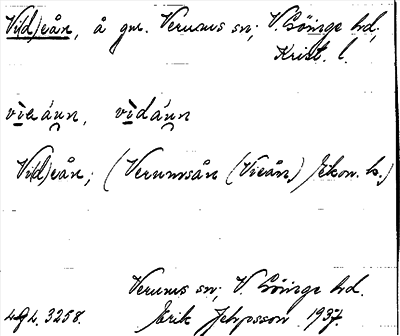 Vi(d)eån, å gm. Verums sn; V. Göinge hd,
Krist. l.
vìeáun, vìdáun
Vi(d)eån; (Verumsån (Vieån) /Ekon. k.)
Verums sn; V. Göinge hd.
Erik Jeppsson 1937